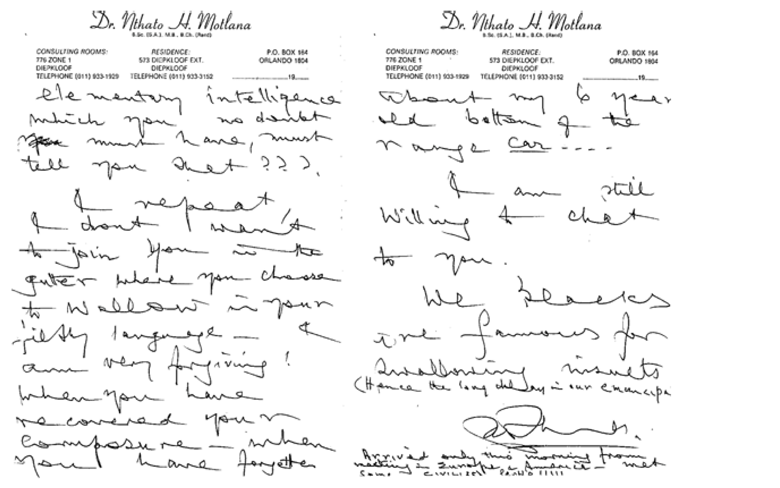 Dr. Nthato H. Motlana
B.Sc. (S.A.), M.B., B.Ch. (Rand)
CONSULTING ROOMS:
776 ZONE 1
DIEPKLOOF
TELEPHONE (011) 933-1929
RESIDENCE:
573 DIEPKLOOF EXT.
DIEPKLOOF
TELEPHONE (011) 933-3152
P.O. BOX 164
ORLANDO 1804
19
elementary intelligence
which you no doubt
must have, must
tell you that ???.
I repeat,
I don't want
to join you in the
gutter where you choose
to wallow in your
filthy language — I
am very forgiving!
When you have
recovered your
composure — when
you have forgotten
Dr. Nthato H. Motlana
B.Sc. (S.A.), M.B., B.Ch. (Rand)
CONSULTING ROOMS:
776 ZONE 1
DIEPKLOOF
TELEPHONE (011) 933-1929
RESIDENCE:
573 DIEPKLOOF EXT.
DIEPKLOOF
TELEPHONE (011) 933-3152
P.O. BOX 164
ORLANDO 1804
19
about my 6 year
old bottom of the
range car ----
I am still
willing to chat
to you.
We blacks
are famous for
swallowing insults
(Hence the long delay in our emancipa
Arrived only this morning from
meeting in Europe & America — met
some CIVILISED !!!!!